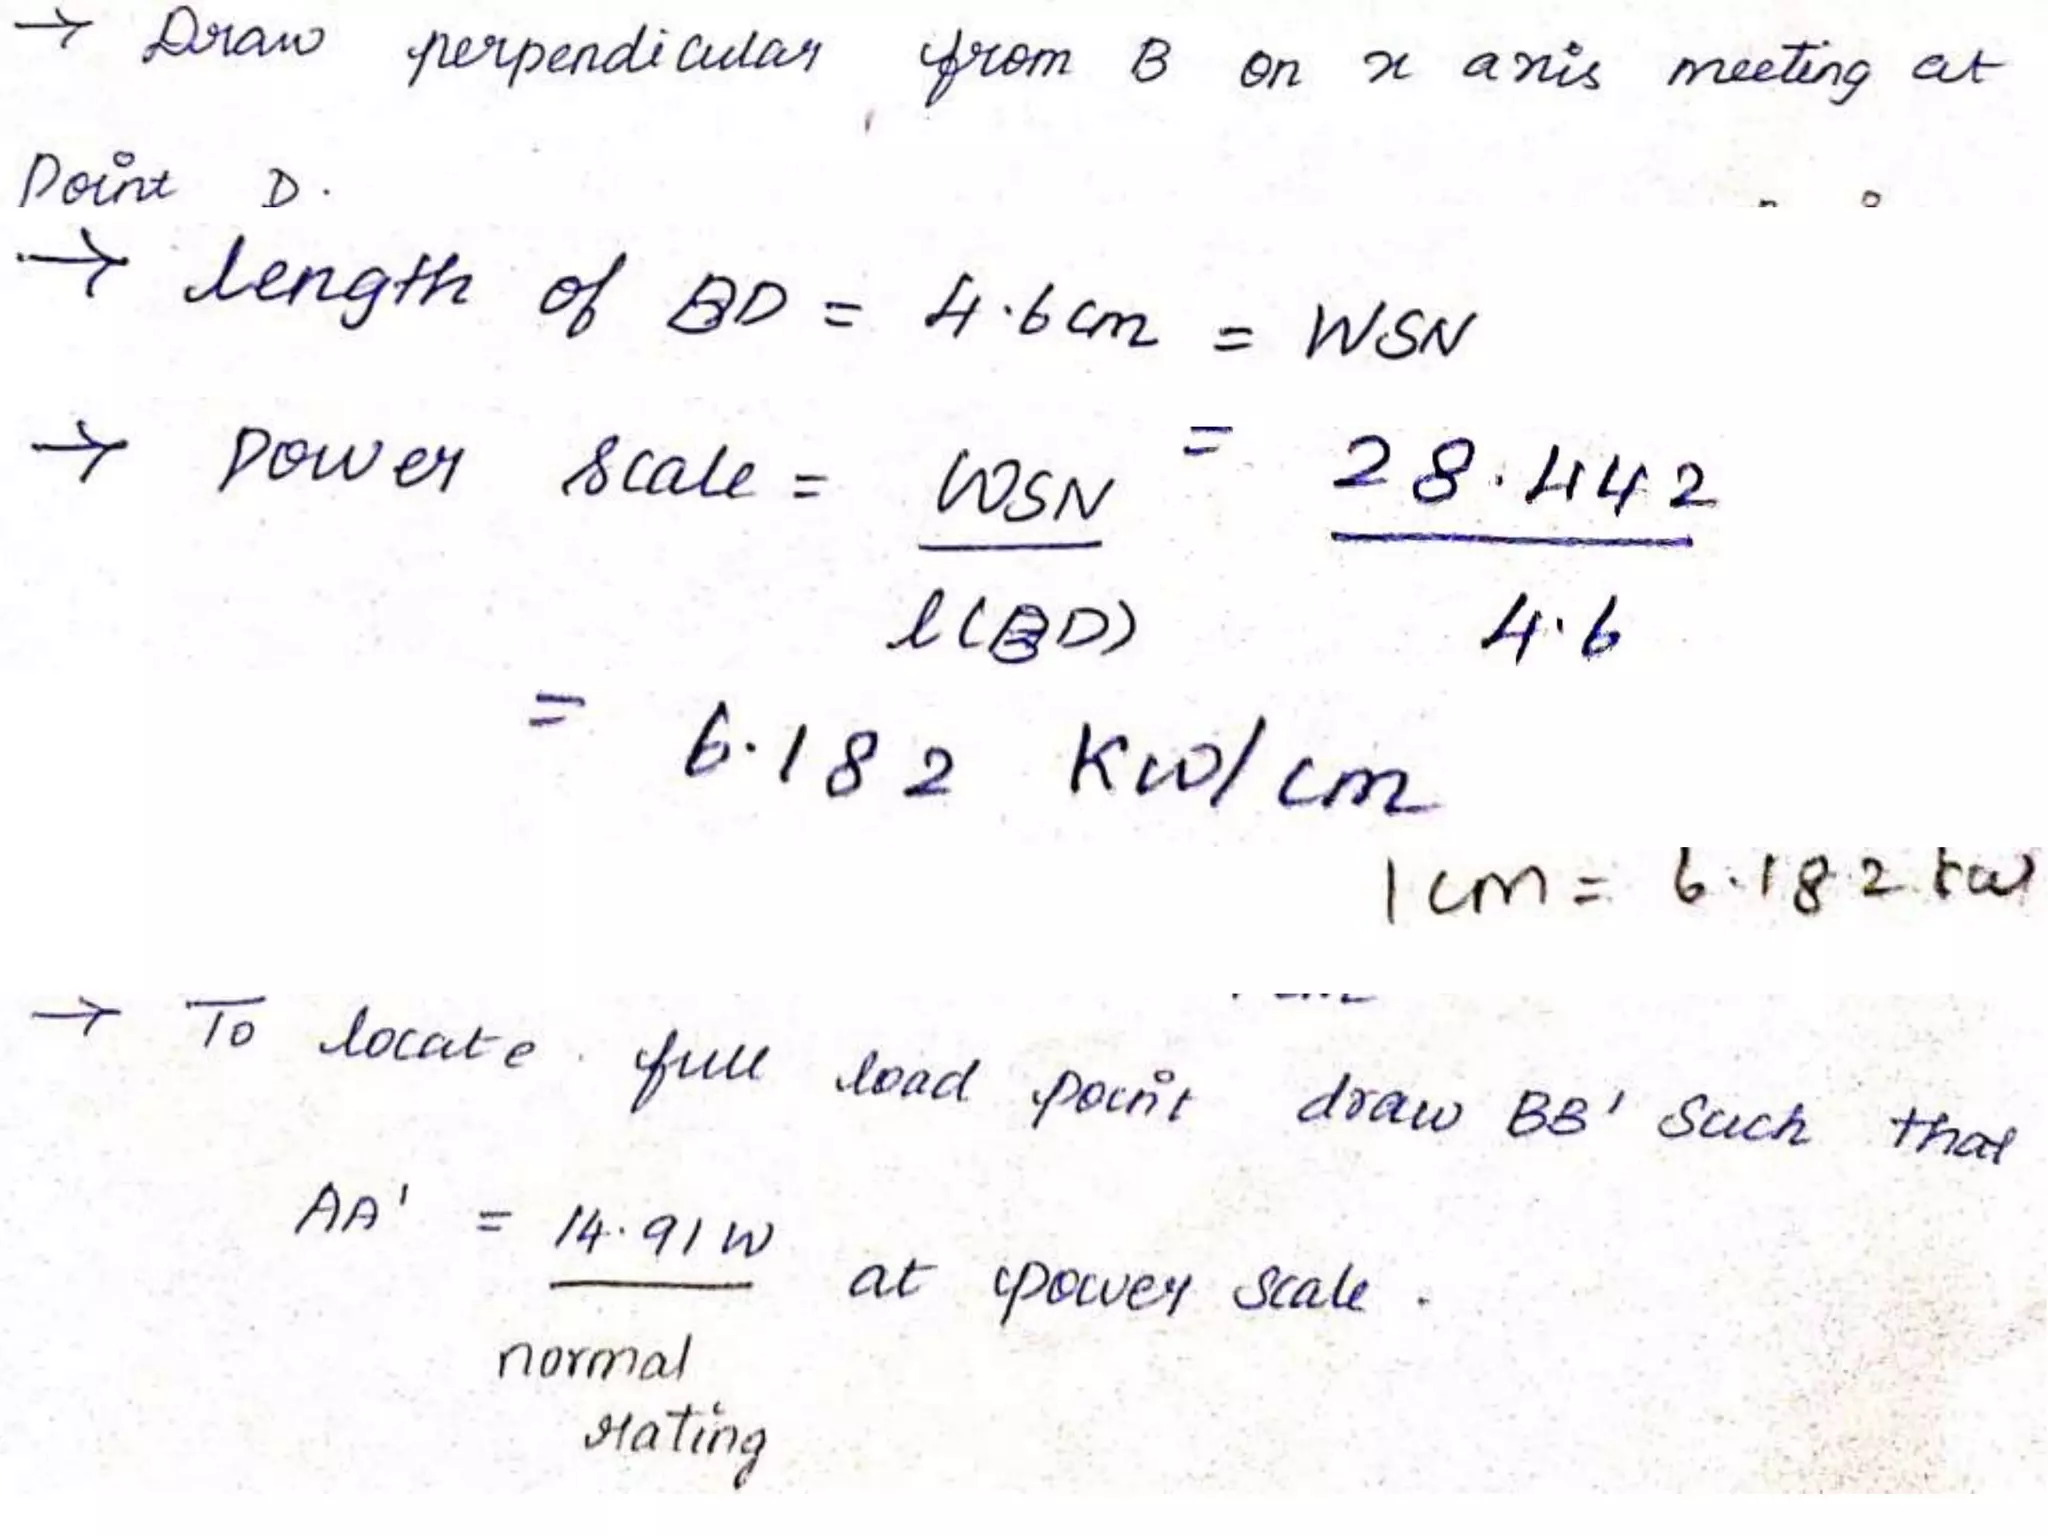 → Draw perpendicular from B on x axis meeting at
Point D.
→ length of BD = 4.6cm = WSN
→ Power Scale = WSN / l(BD) = 28.442 / 4.6
= 6.182 KW/cm
1cm = 6.182 kW
→ To locate full load point draw BB' Such that
AA' = 14.91W at power Scale.
normal
rating